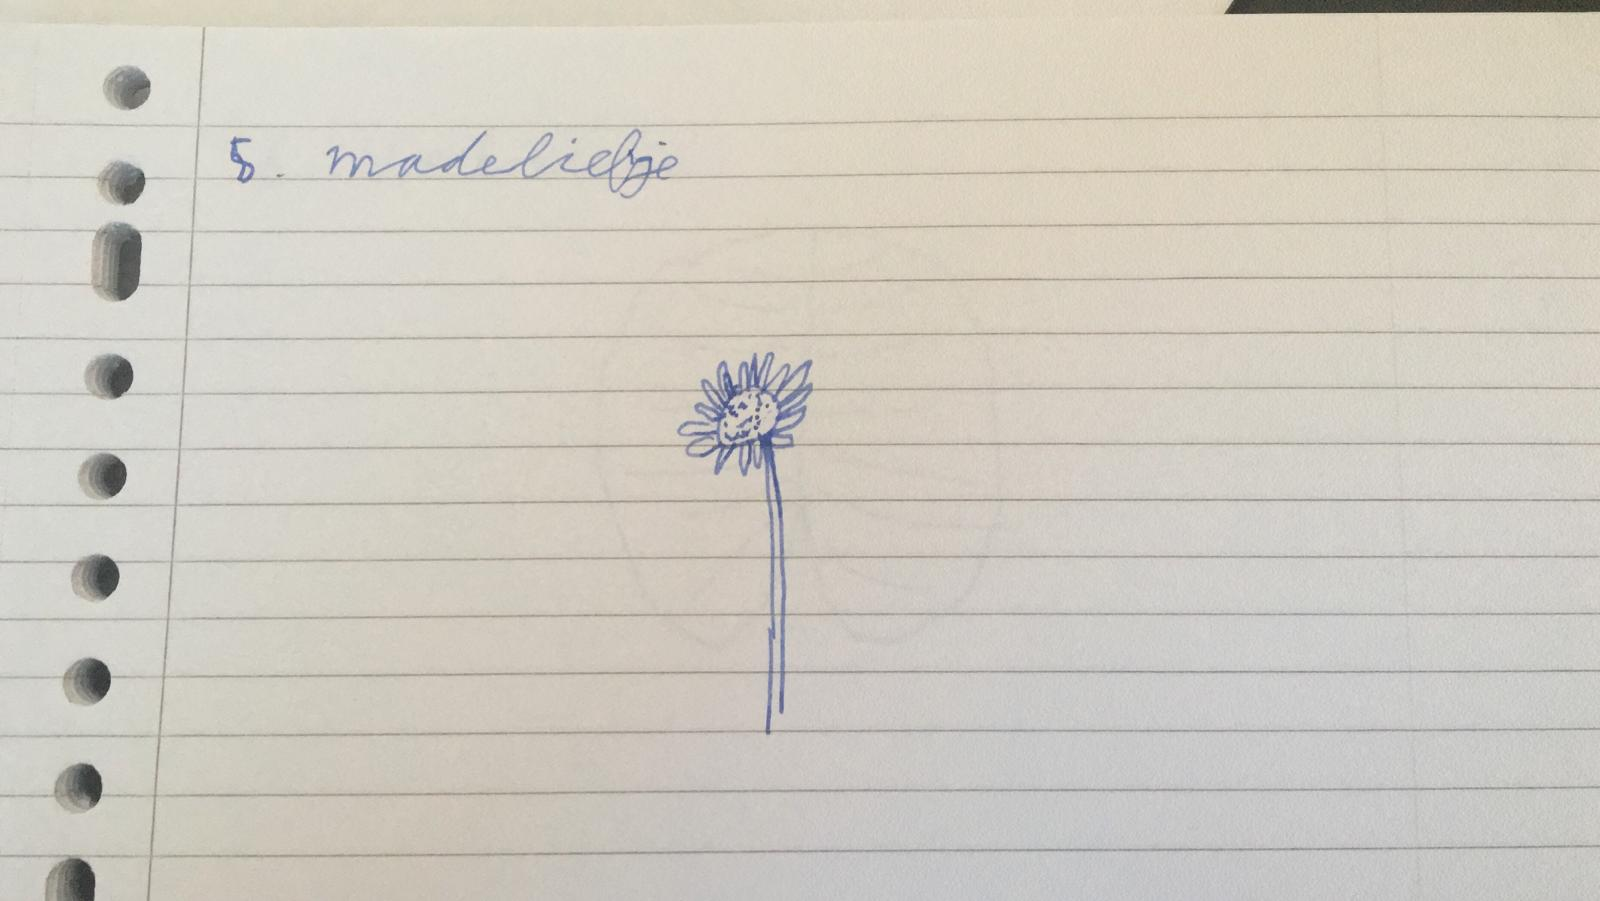 5. madeliefje